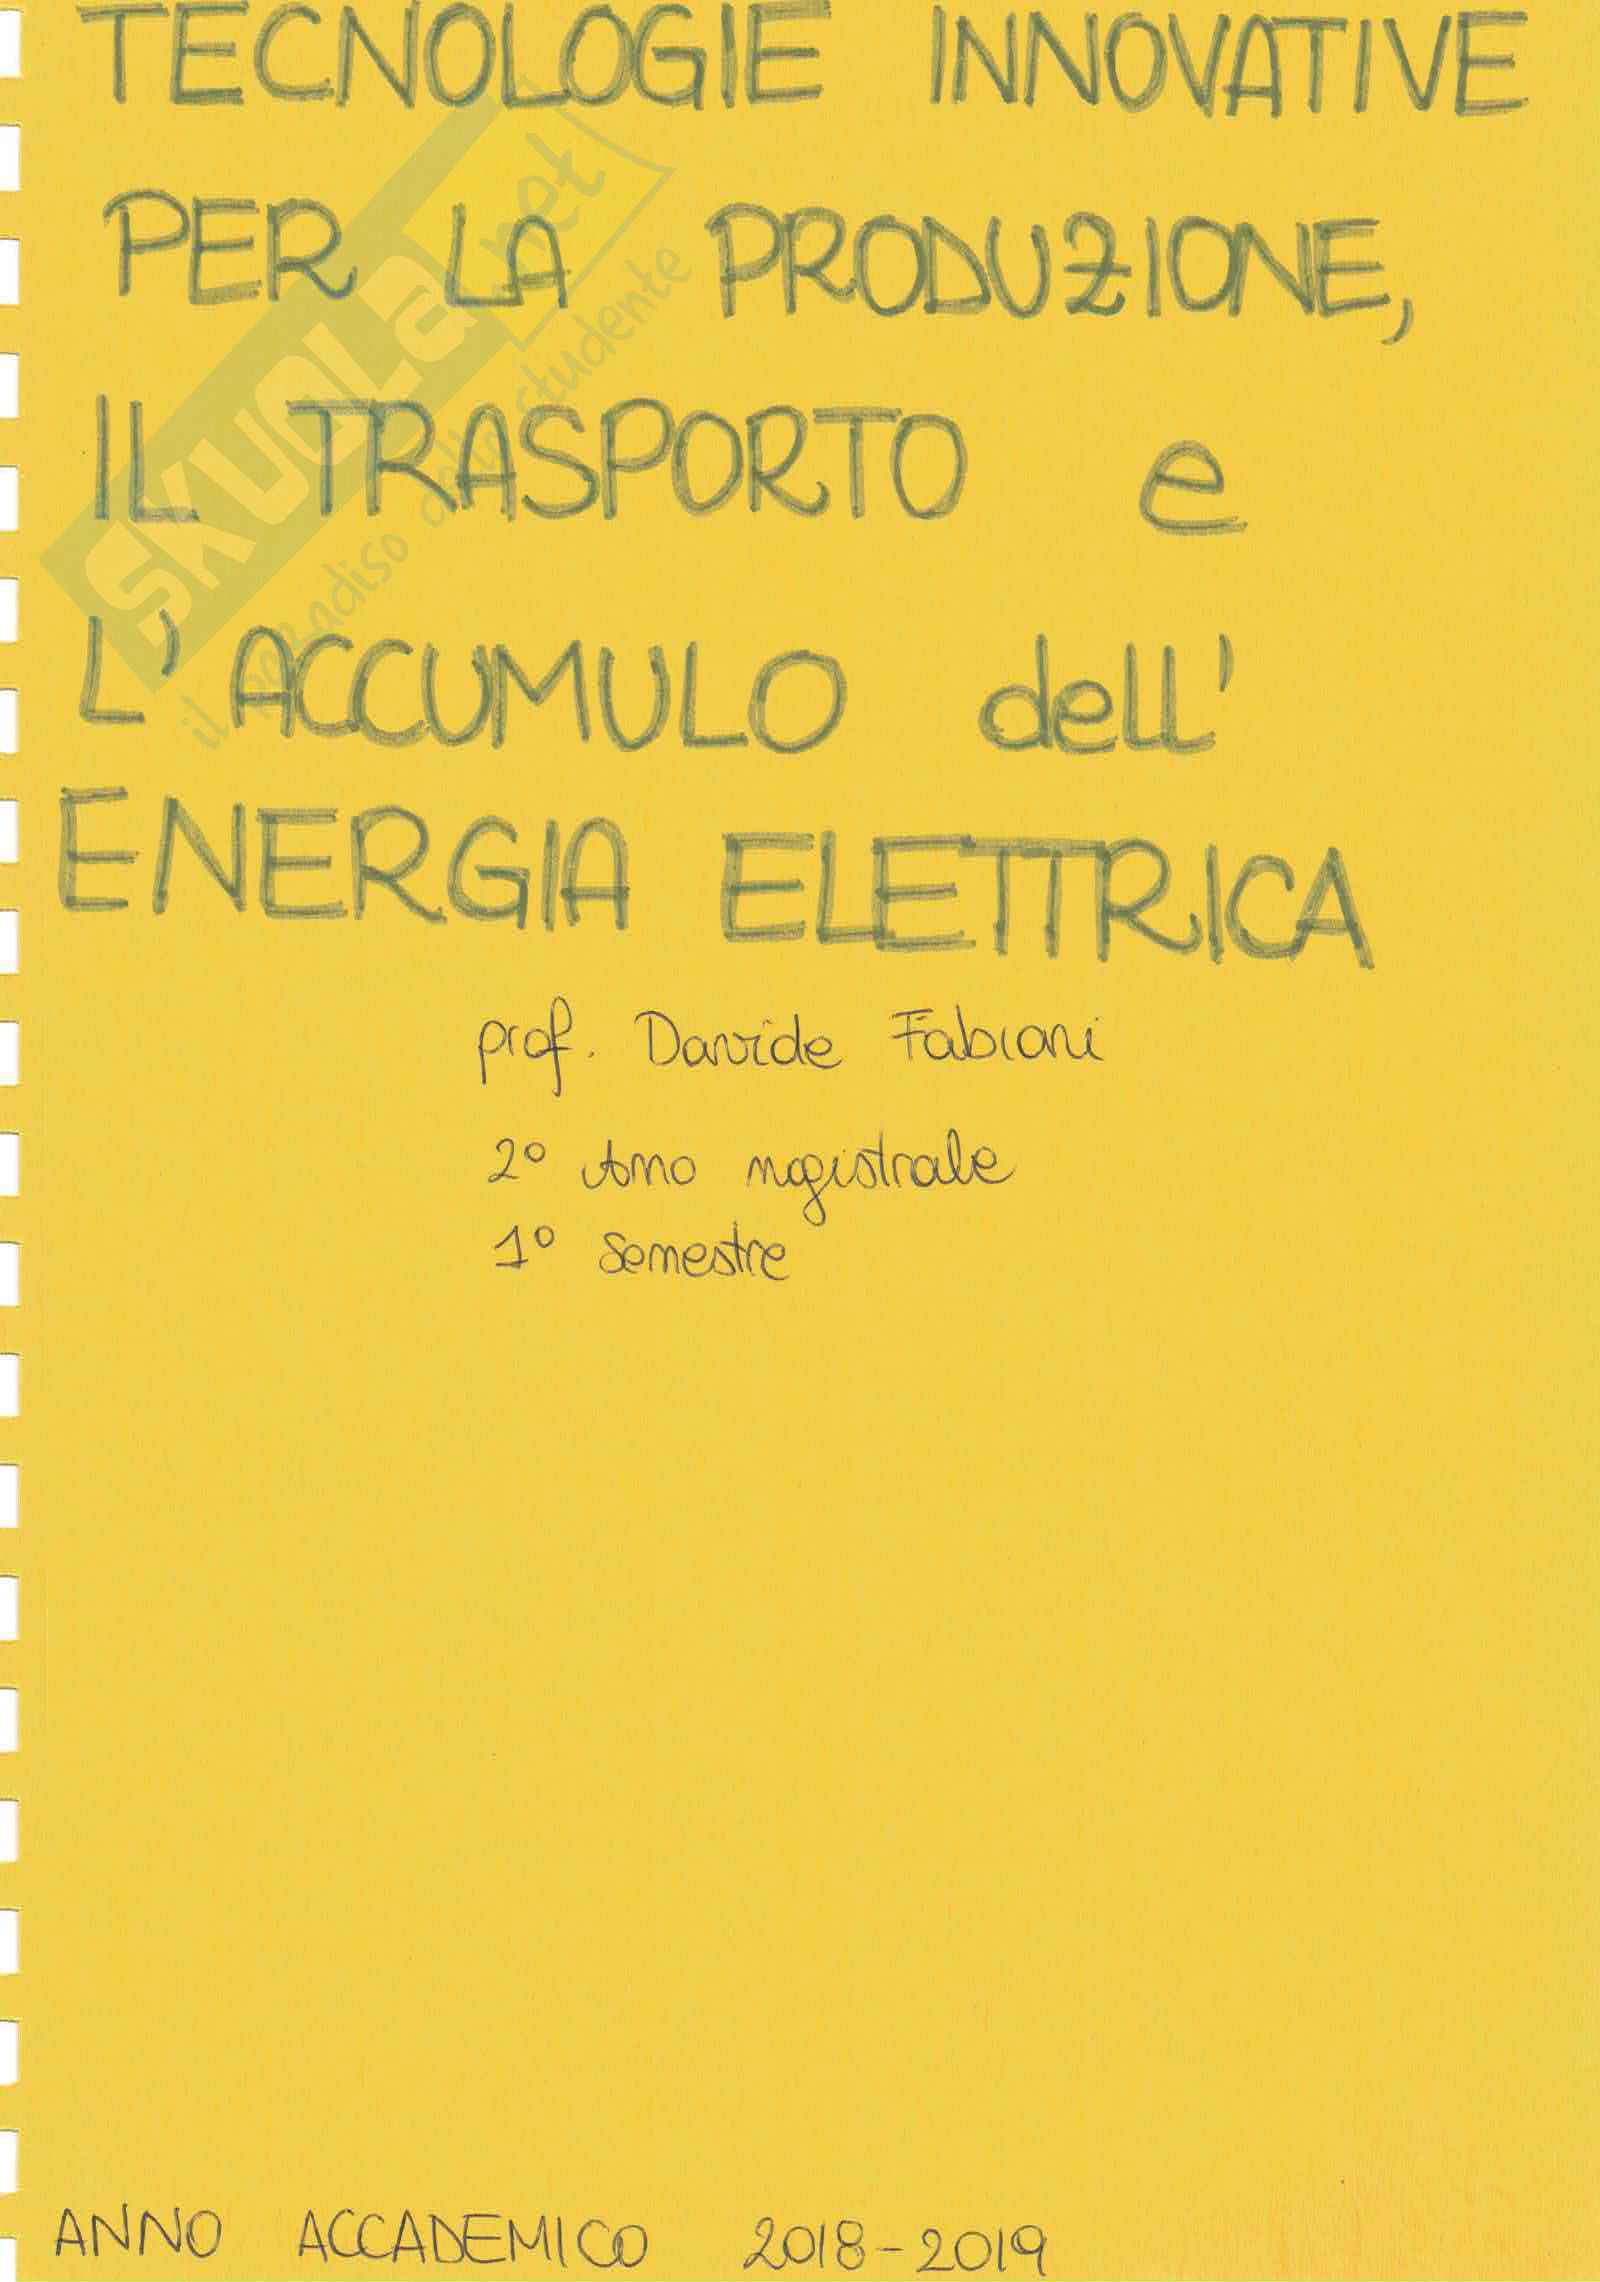 TECNOLOGIE INNOVATIVE
PER LA PRODUZIONE,
IL TRASPORTO e
L'ACCUMULO dell'
ENERGIA ELETTRICA
prof. Davide Fabiani
2° Anno magistrale
1° Semestre
ANNO ACCADEMICO 2018-2019
SKUOLA.net
il paradiso dello studente